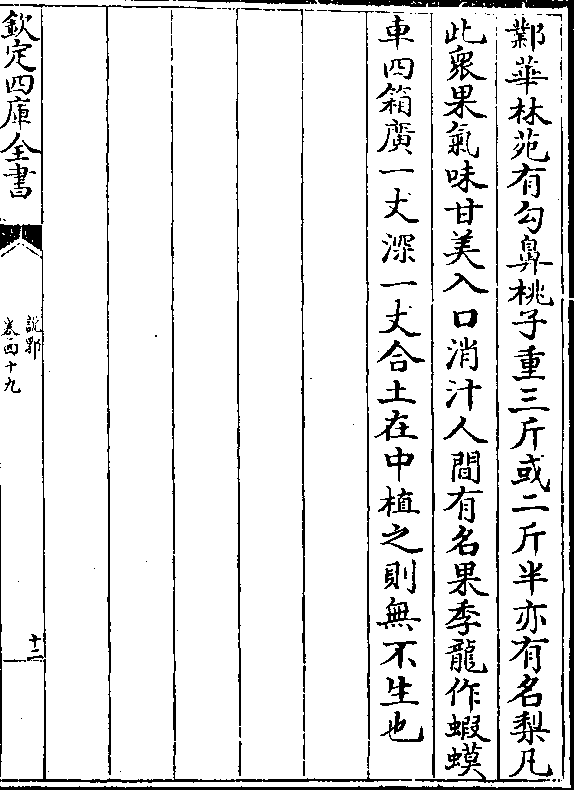 鄴華林苑有勾鼻桃子重三斤或二斤半亦有名梨凡
此衆果氣味甘美入口消汁人間有名果季龍作蝦蟆
車四箱廣一丈深一丈合土在中植之則無不生也
欽定四庫全書
說郛
卷五十九
十二